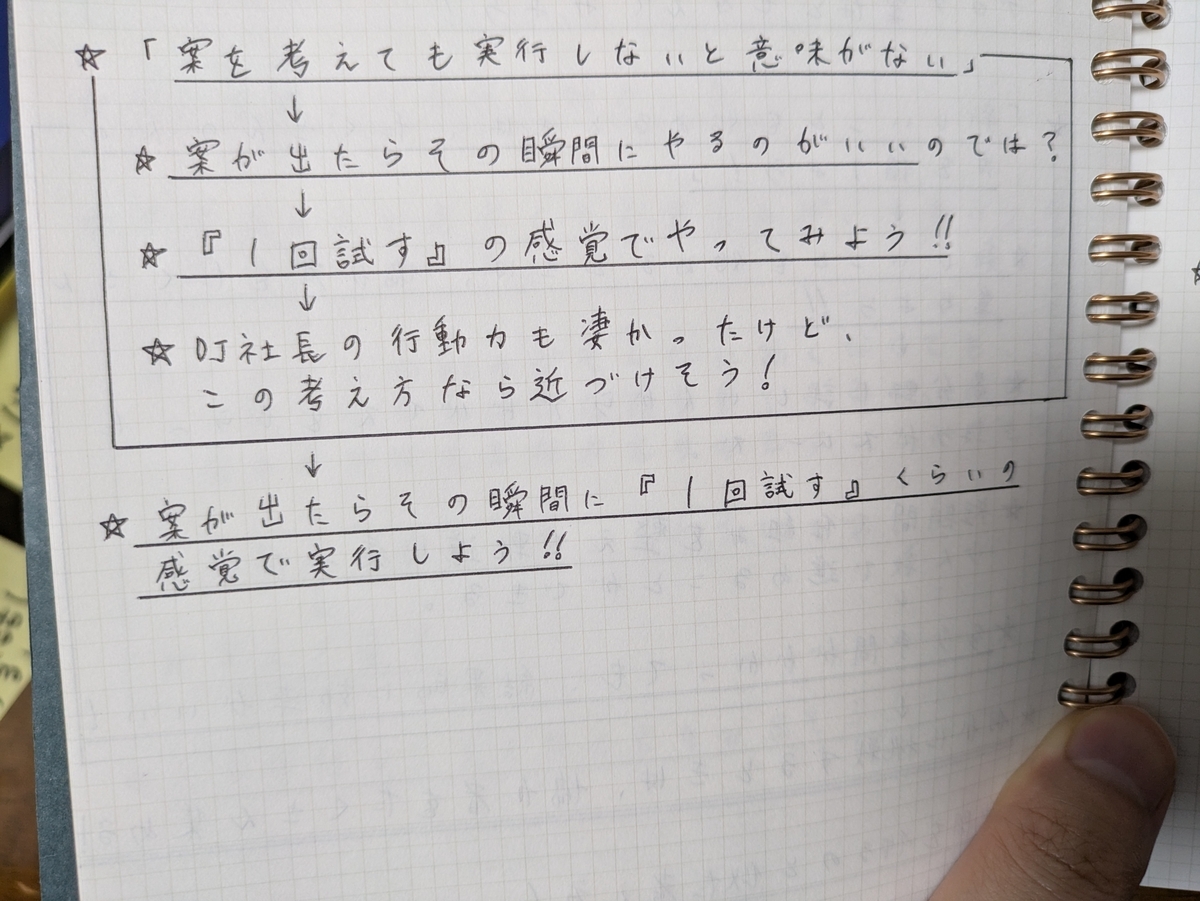 ☆ 「案を考えても実行しないと意味がない」
↓
☆ 案が出たらその瞬間にやるのがいいのでは?
↓
☆ 『1回試す』の感覚でやってみよう!!
↓
☆ DJ社長の行動力も凄かったけど、
この考え方なら近づけそう!
↓
☆ 案が出たらその瞬間に『1回試す』くらいの
感覚で実行しよう!!